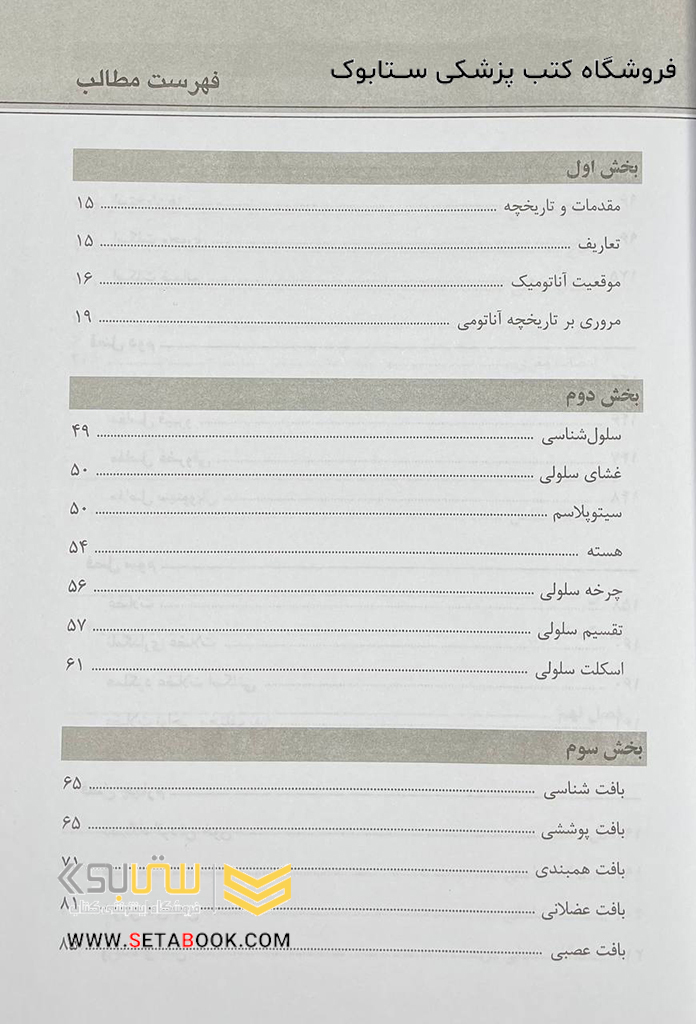 فروشگاه کتب پزشکی ستابوک
فهرست مطالب
بخش اول
مقدمات و تاریخچه ۱۵
تعاریف ۱۵
موقعیت آناتومیک ۱۶
مروری بر تاریخچه آناتومی ۱۹
بخش دوم
سلول‌شناسی ۴۹
غشای سلولی ۵۰
سیتوپلاسم ۵۰
هسته ۵۴
چرخه سلولی ۵۶
تقسیم سلولی ۵۷
اسکلت سلولی ۶۱
بخش سوم
بافت شناسی ۶۵
بافت پوششی ۶۵
بافت همبندی ۷۱
بافت عضلانی ۸۱
بافت عصبی
ستابوک
فروشگاه اینترنتی کتاب
WWW.SETABOOK.COM